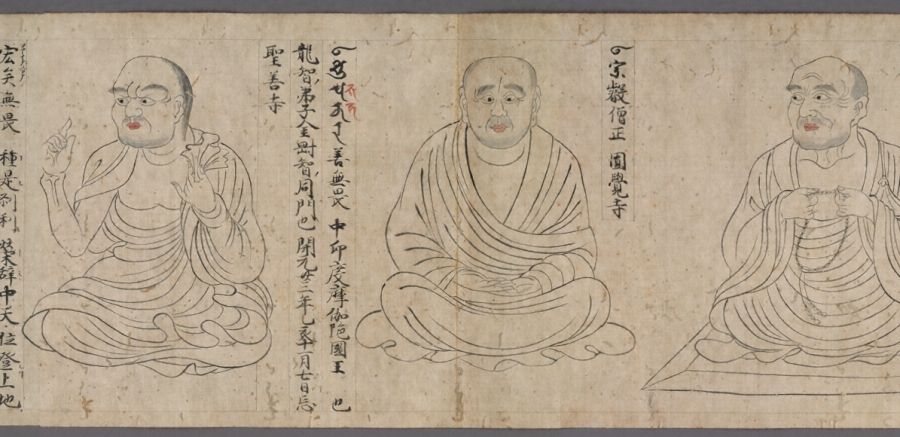 宗叡僧正 圓覺寺
善無畏 中印度摩伽陀國王 也
龍智弟子金剛智同門也 開元廿三年乙亥十一月七日忌
聖善寺
宏矣無畏 種是刹利 棨辞中天 位登上地